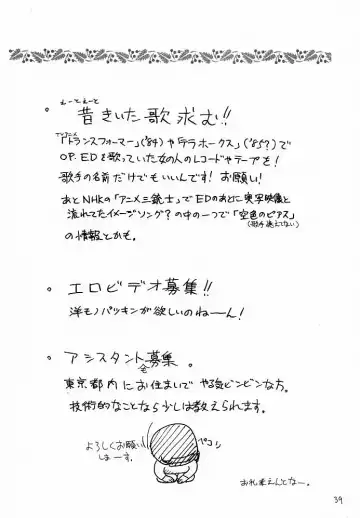 えーとえーと
。昔きいた歌 求む!!
TVアニメ
「トランスフォーマー」('84)や「テラホークス」('85?)で
OP. EDを歌っていた女の人のレコードやテープを!
歌手の名前だけでもいいんです! お願い!
あとNHKの「アニメ三銃士」でEDのあとに実写映像と
流れてたイメージソング?の中の一つで「空色のピアス」
(歌手憶えてない)
の情報とかも。
。エロビデオ募集!!
洋モノパツキンが欲しいのねーん!
。アシスタント募集。
東京都内にお住まいで やる気ビンビンな方。
技術的なことなら少しは教えられます。
よろしくお願い
しまーす。
ペコリ
お礼まえんとなー。
39